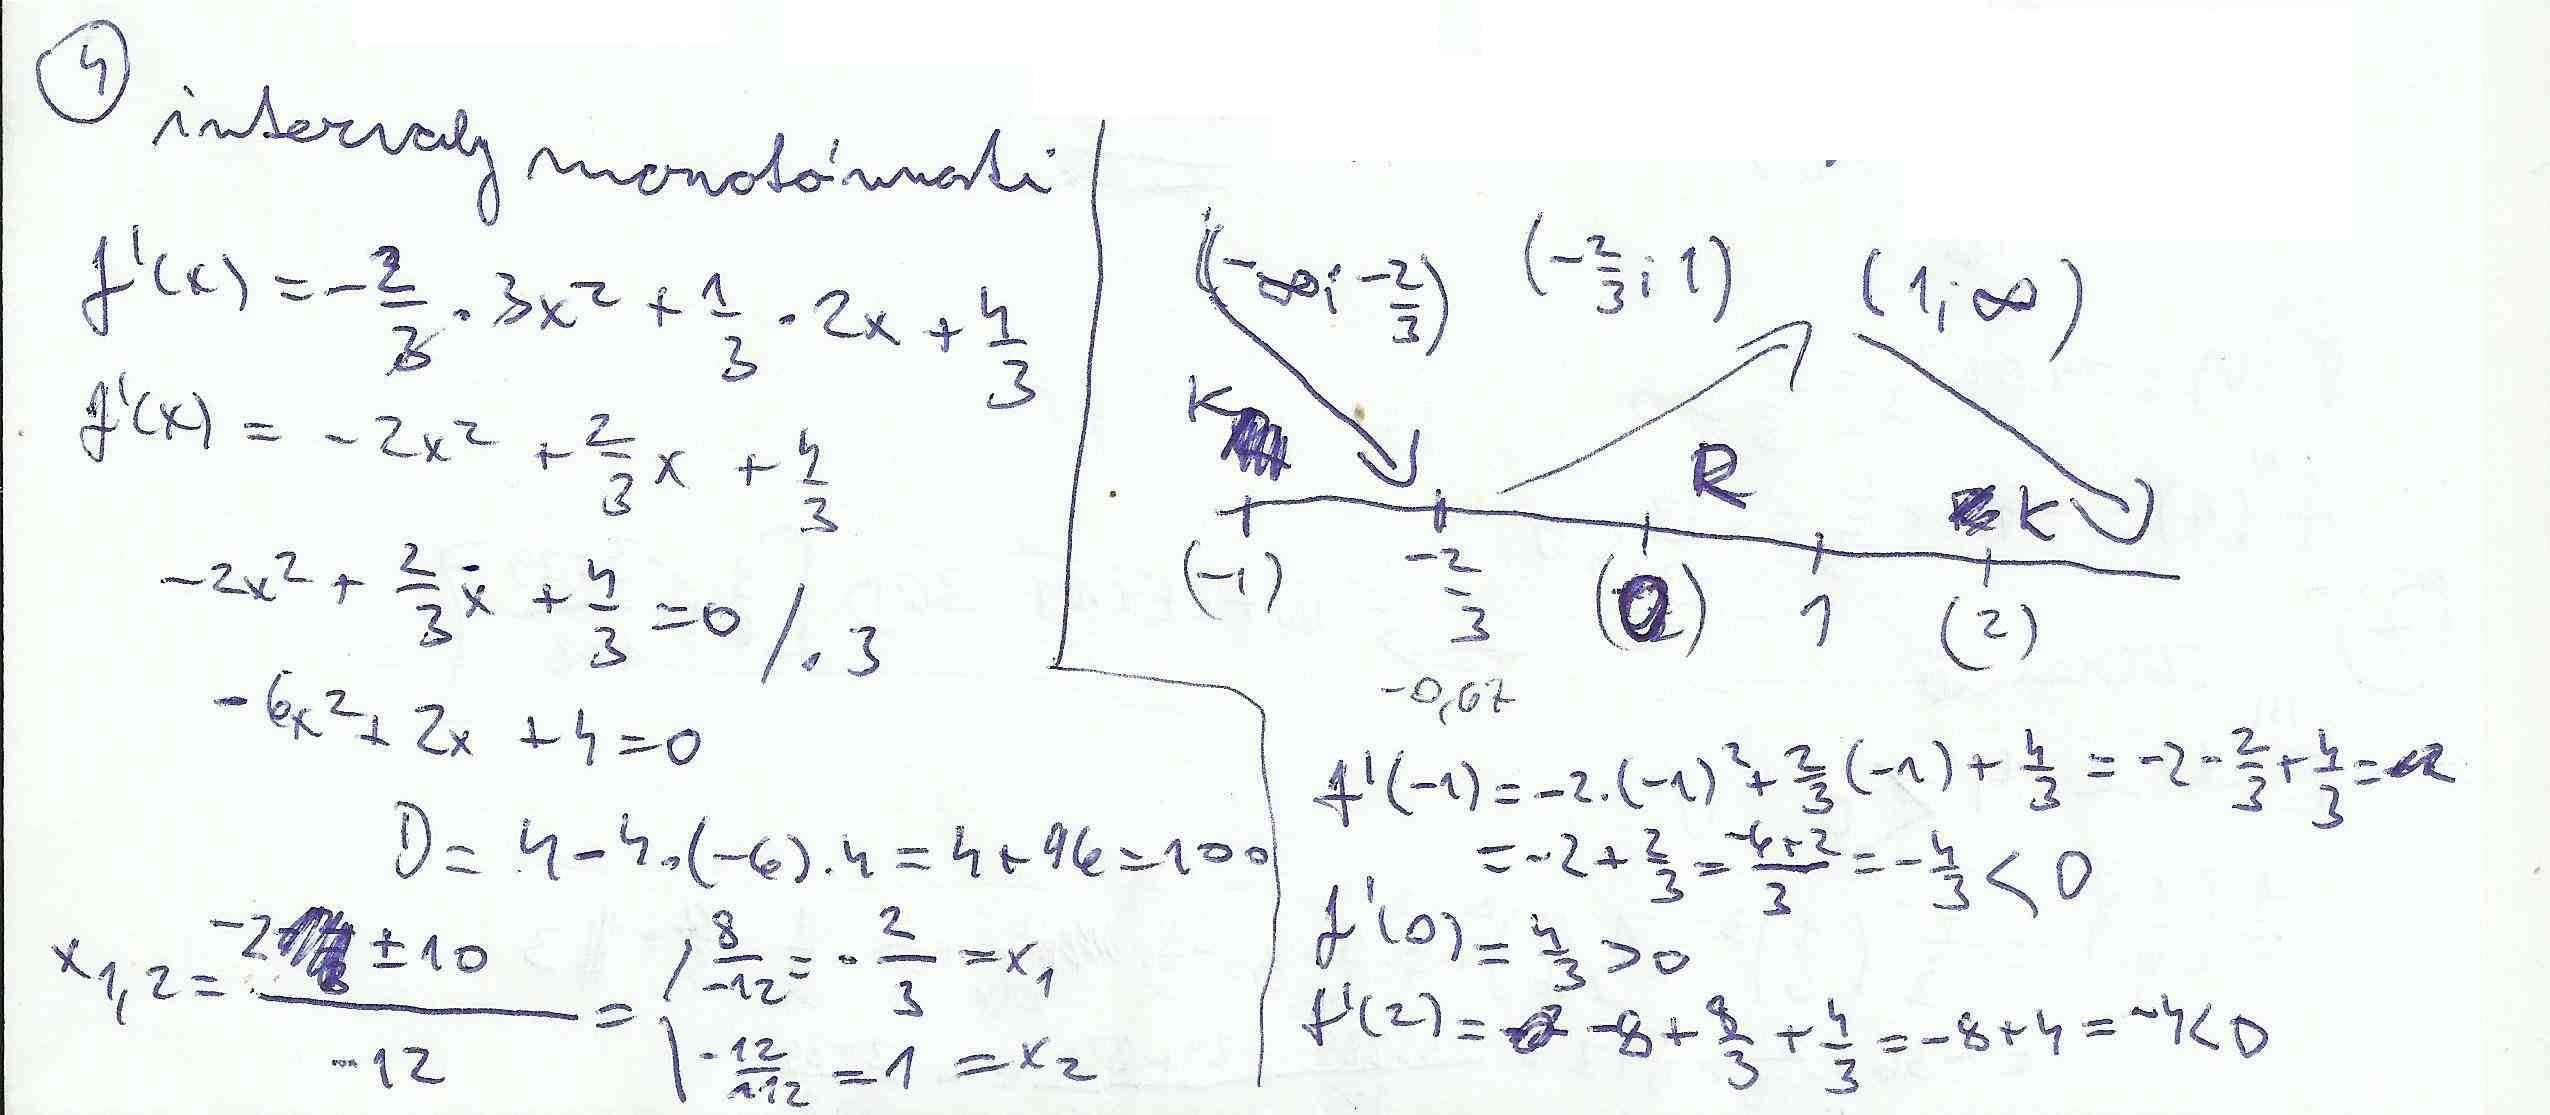 4
intervaly monotónnosti
f'(x) = -2/3 · 3x² + 1/3 · 2x + 4/3
f'(x) = -2x² + 2/3 x + 4/3
-2x² + 2/3 x + 4/3 = 0 / · 3
-6x² + 2x + 4 = 0
D = 4 - 4 · (-6) · 4 = 4 + 96 = 100
x1,2 = (-2 ± 10)/-12 =
8/-12 = -2/3 = x1
-12/-12 = 1 = x2
(-∞; -2/3) (-2/3; 1) (1; ∞)
K R K
(-1) -2/3 (0) 1 (2)
-0,67
f'(-1) = -2 · (-1)² + 2/3 (-1) + 4/3 = -2 - 2/3 + 4/3 =
= -2 + 2/3 = (-6+2)/3 = -4/3 < 0
f'(0) = 4/3 > 0
f'(2) = -8 + 8/3 + 4/3 = -8 + 4 = -4 < 0